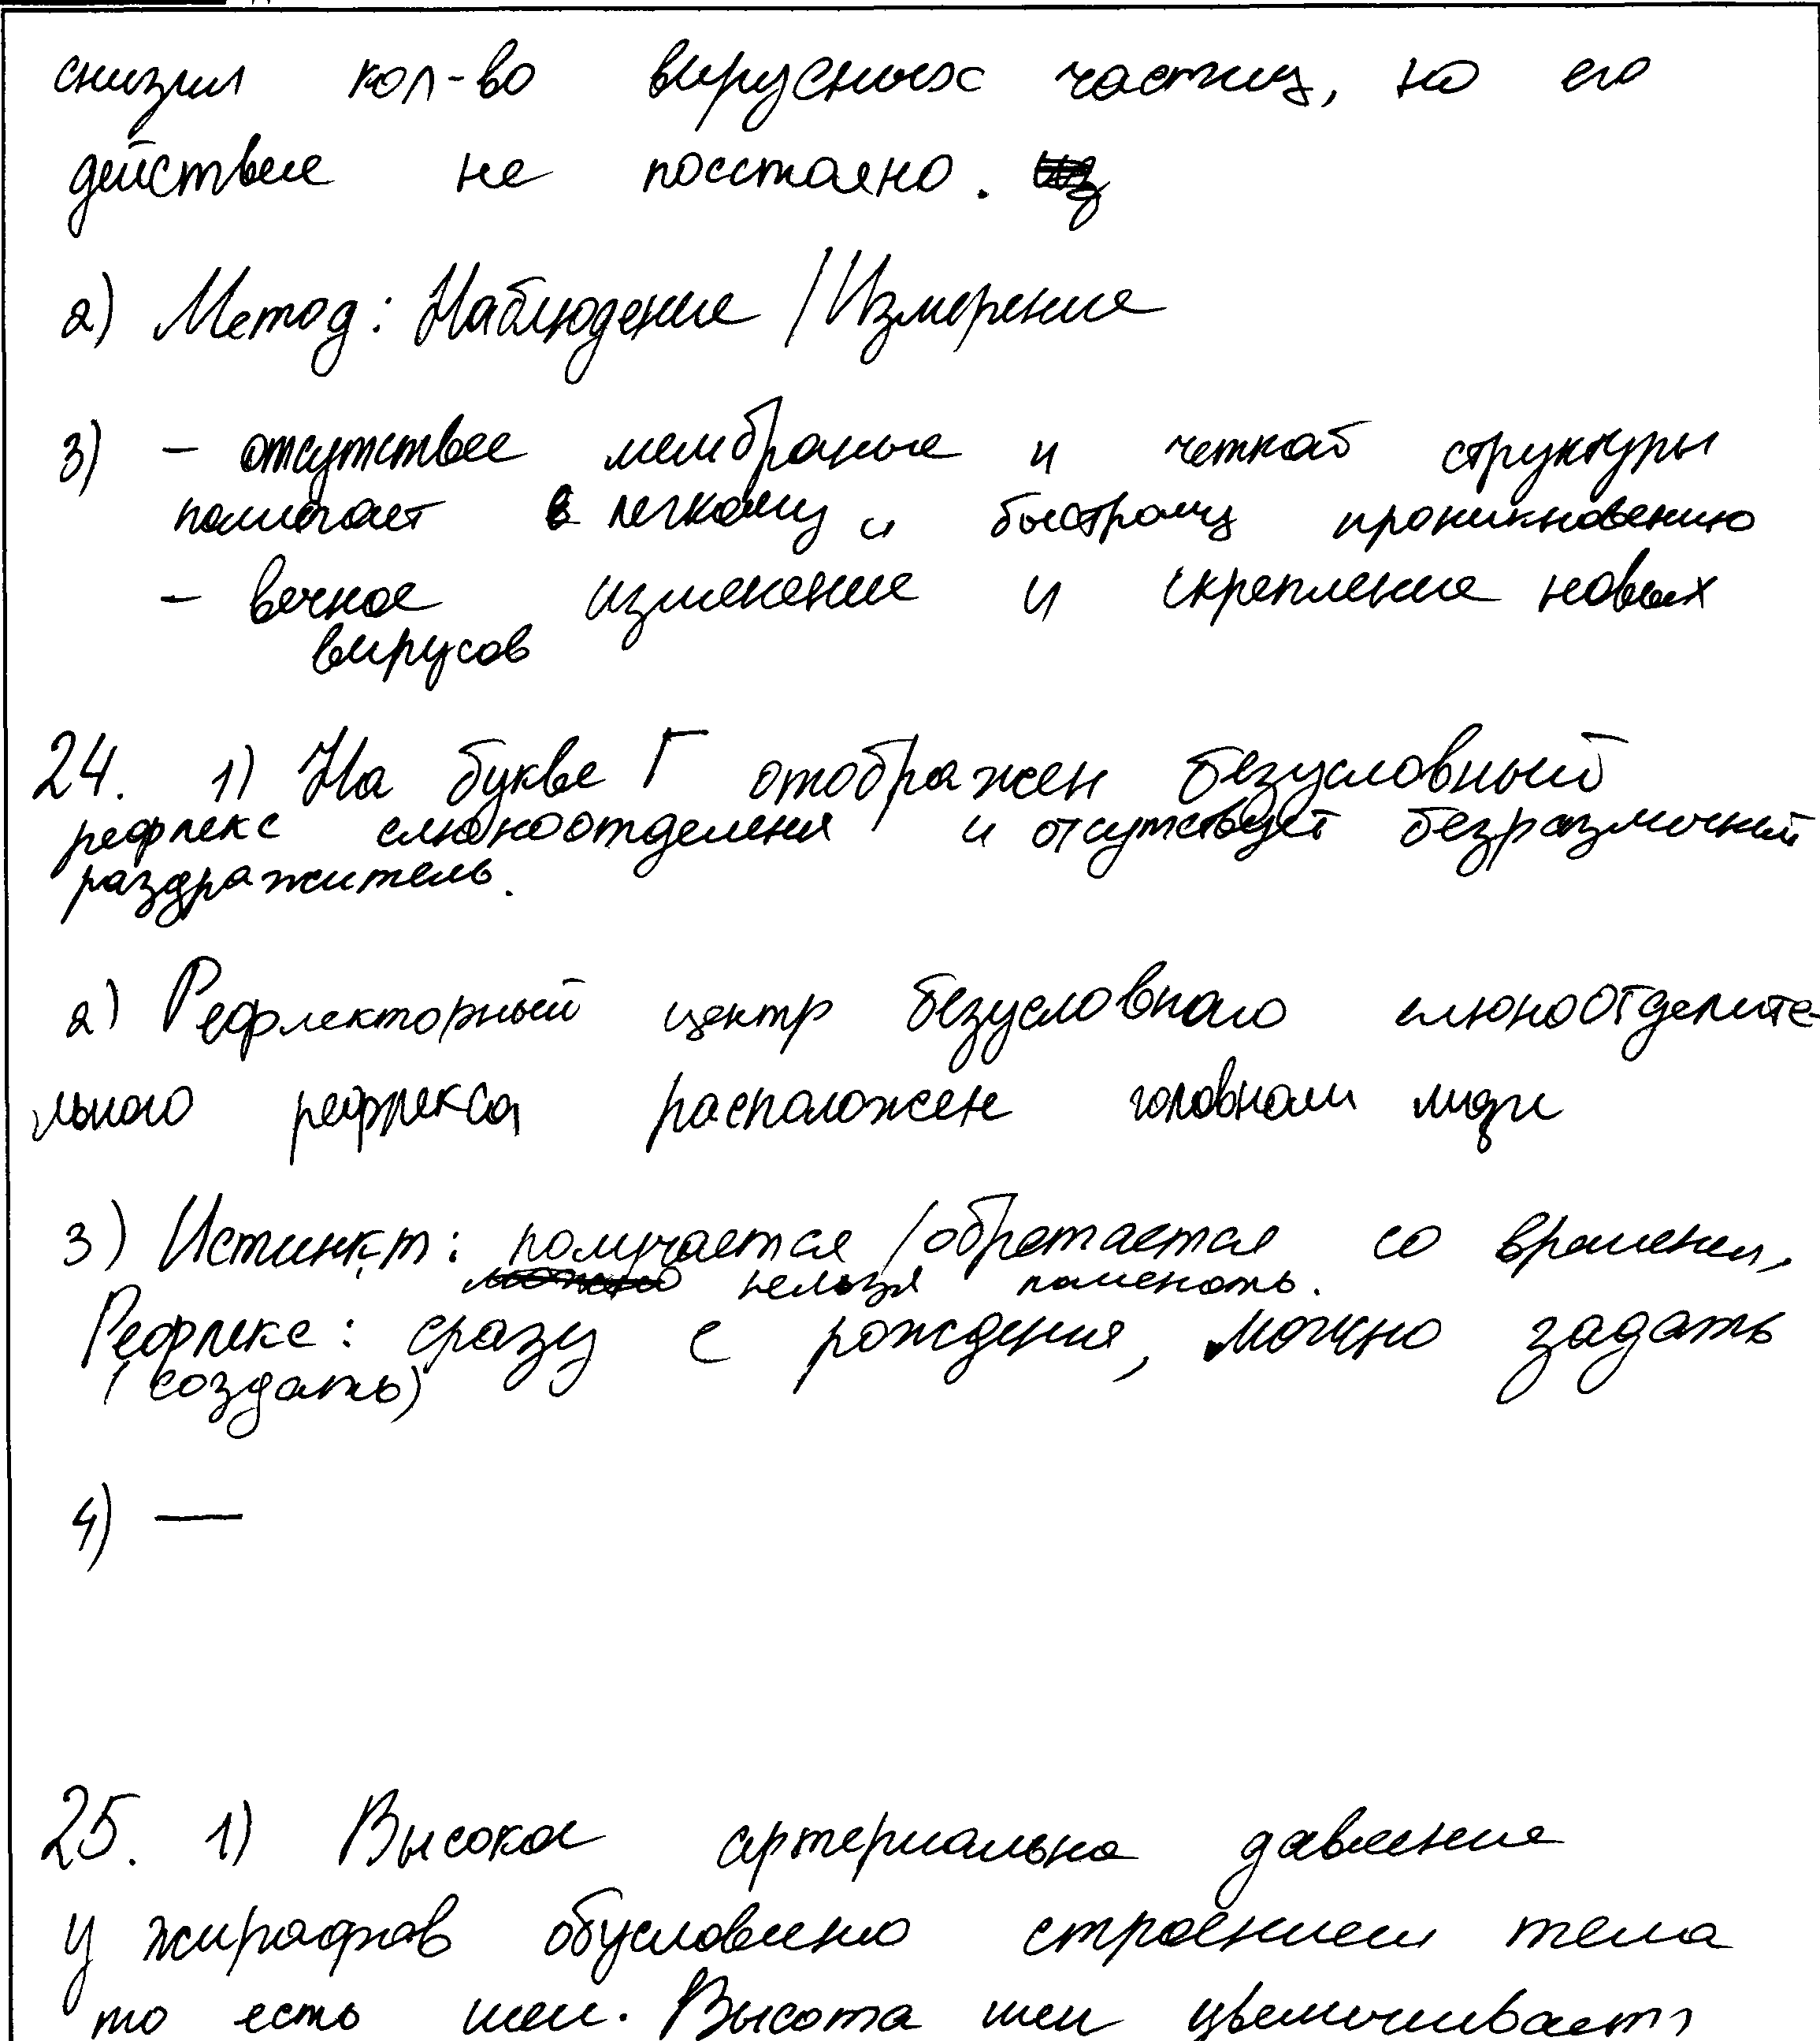 снизил кол-во вирусных частиц, но его
действие не посстояно.
2) Метод: Наблюдение / Измерение
3) - отсутствее мембраные и четкой структуры
помогает в легкому и быстрому проникновению
- вечное изменение и скрепление новых
вирусов
24. 1) На букве Г отображен безусловный
рефлекс слюноотделения и отсутствует безразличный
раздражитель.
2) Рефлекторный центр безусловного слюноотделите-
льного рефлекса расположен головном мозги
3) Истинкт: получается / обретается со временем,
нельзя поменять.
Рефлекс: сразу с рождения, можно задать
(создать)
4) —
25. 1) Высокое артериально давление
у жирафов обусловлено строением тела
то есть шеи. Высота шеи